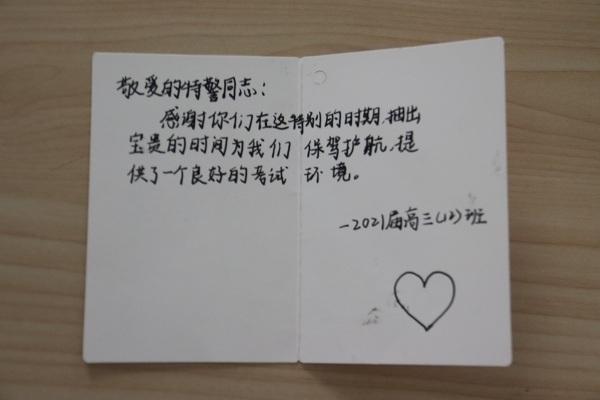 敬爱的特警同志：
感谢你们在这特别的时期，抽出
宝贵的时间为我们保驾护航，提
供了一个良好的考试环境。
－2021届高三（12）班